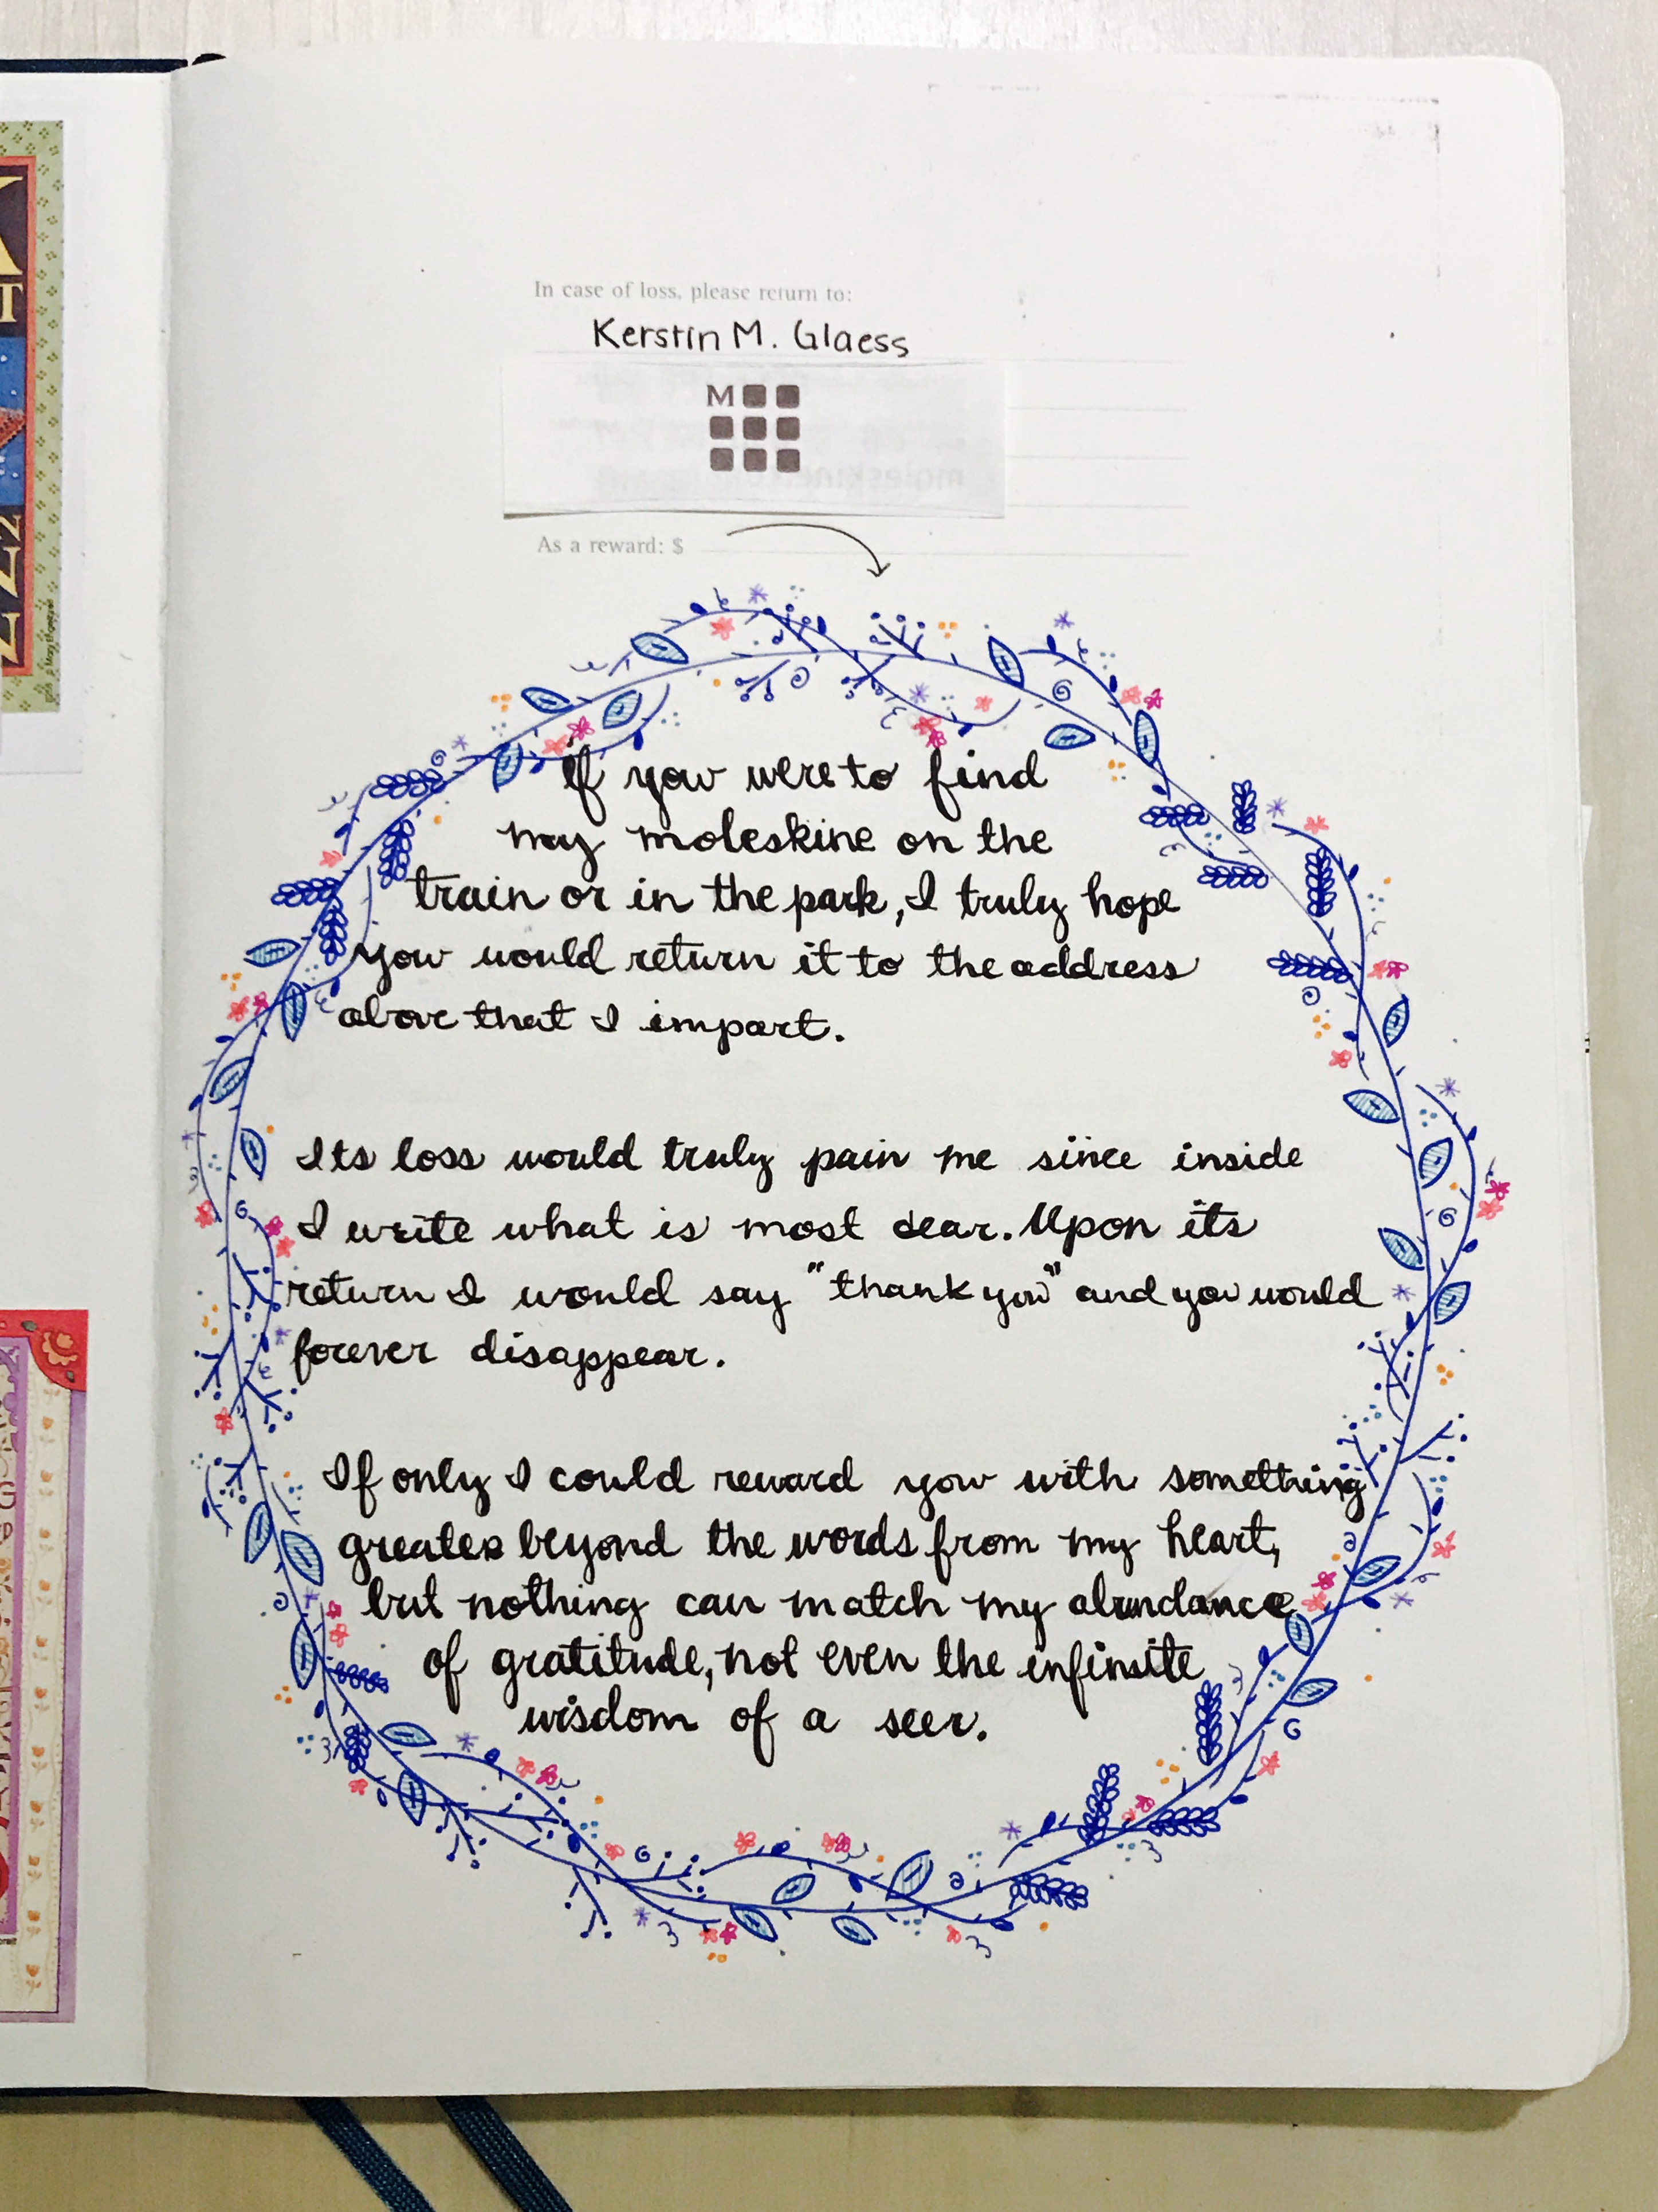 In case of loss, please return to:
Kerstin M. Glaess
M
As a reward: $
If you were to find
my moleskine on the
train or in the park, I truly hope
you would return it to the address
above that I impart.
Its loss would truly pain me since inside
I write what is most dear. Upon its
return I would say "thank you" and you would
forever disappear.
If only I could reward you with something
greater beyond the words from my heart,
but nothing can match my abundance
of gratitude, not even the infinite
wisdom of a seer.